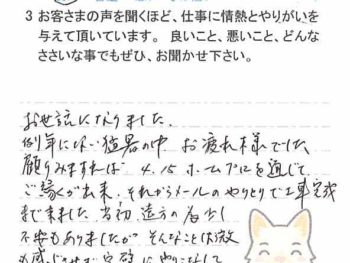 3 お客さまの声を聞くほど、仕事に情熱とやりがいを
与えて頂いています。 良いこと、悪いこと、どんな
ささいな事でもぜひ、お聞かせ下さい。
お世話になりました。
例年にない猛暑の中 お疲れ様でした
顧りみますれば 4.15 ホームプロを通じて
ご縁が出来、それからメールのやりとりで工事完成
まできました 当初 遠方の為少し
不安もありましたが そんなことは微